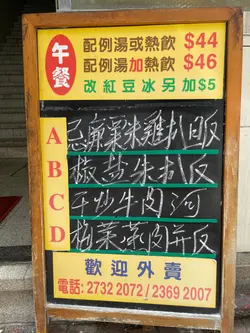 午餐
配例湯或熱飲 $44
配例湯加熱飲 $46
改紅豆冰另加$5
A 忌廉粟米雞扒飯
B 椒盐朱扒反
C 干炒牛肉河
D 梅菜蒸肉并反
歡迎外賣
電話: 2732 2072 / 2369 2007